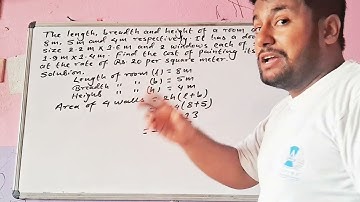 The length, breadth and height of a room ar
8m, 5m and 4m respectively. It has a do
size 2.2m x 1.6m and 2 windows each of s
1.9m x 1.4m. Find the cost of painting its
at the rate of Rs. 20 per square meter.
Solution,
Length of room (l) = 8m
Breadth " " (b) = 5m
Height " " (h) = 4m
Area of 4 walls = 2h(l+b)
(8+5)